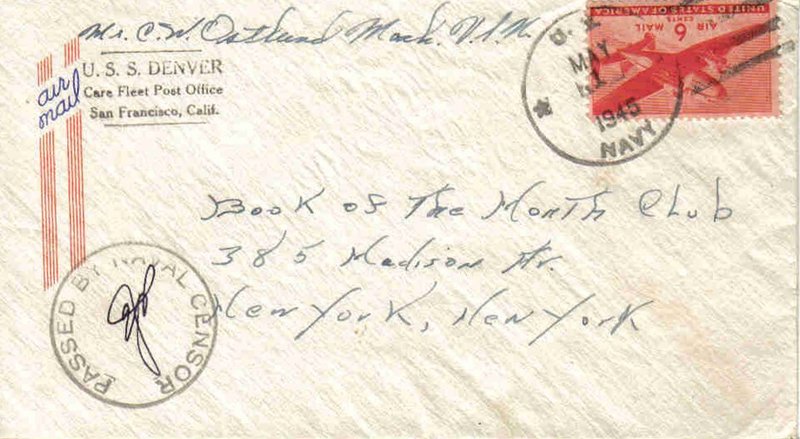 Mr. C. W. Ostlund Mach. U.S.N.
U. S. S. DENVER
Care Fleet Post Office
San Francisco, Calif.
air
mail
U. S.
MAY
1945
NAVY
UNITED STATES OF AMERICA
AIR 6 MAIL
CENTS
Book of The Month Club
385 Madison Av.
New York, New York
PASSED BY NAVAL CENSOR